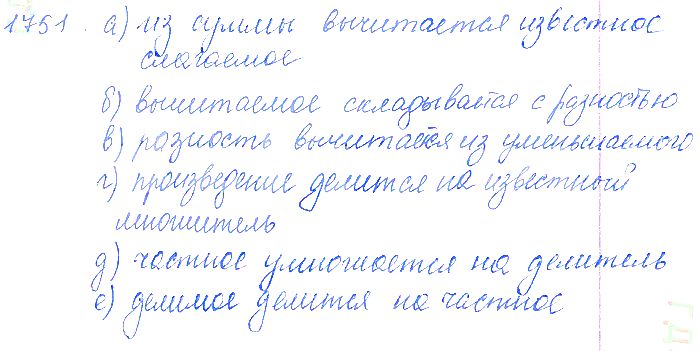 1751. а) из суммы вычитается известное
слагаемое
б) вычитаемое складывается с разностью
в) разность вычитается из уменьшаемого
г) произведение делится на известный
множитель
д) частное умножается на делитель
е) делимое делится на частное